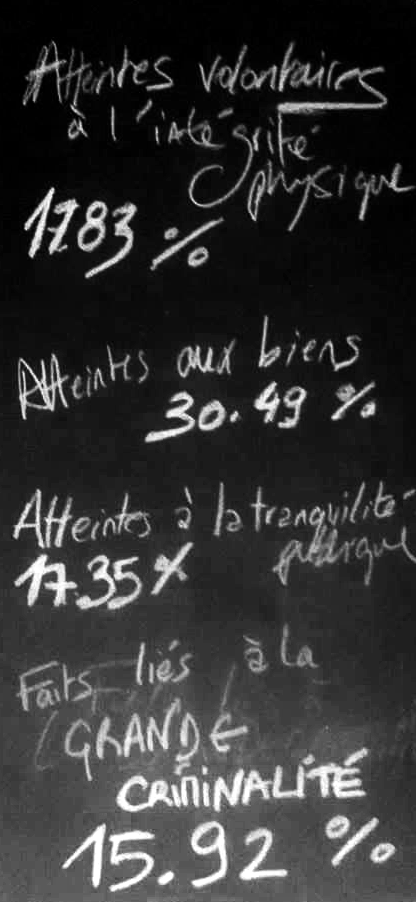 Atteintes volontaires
à l'intégrité
physique
17.83 %
Atteintes aux biens
30.49 %
Atteintes à la tranquilité
publique
17.35 %
Faits liés à la
GRANDE
CRIMINALITÉ
15.92 %